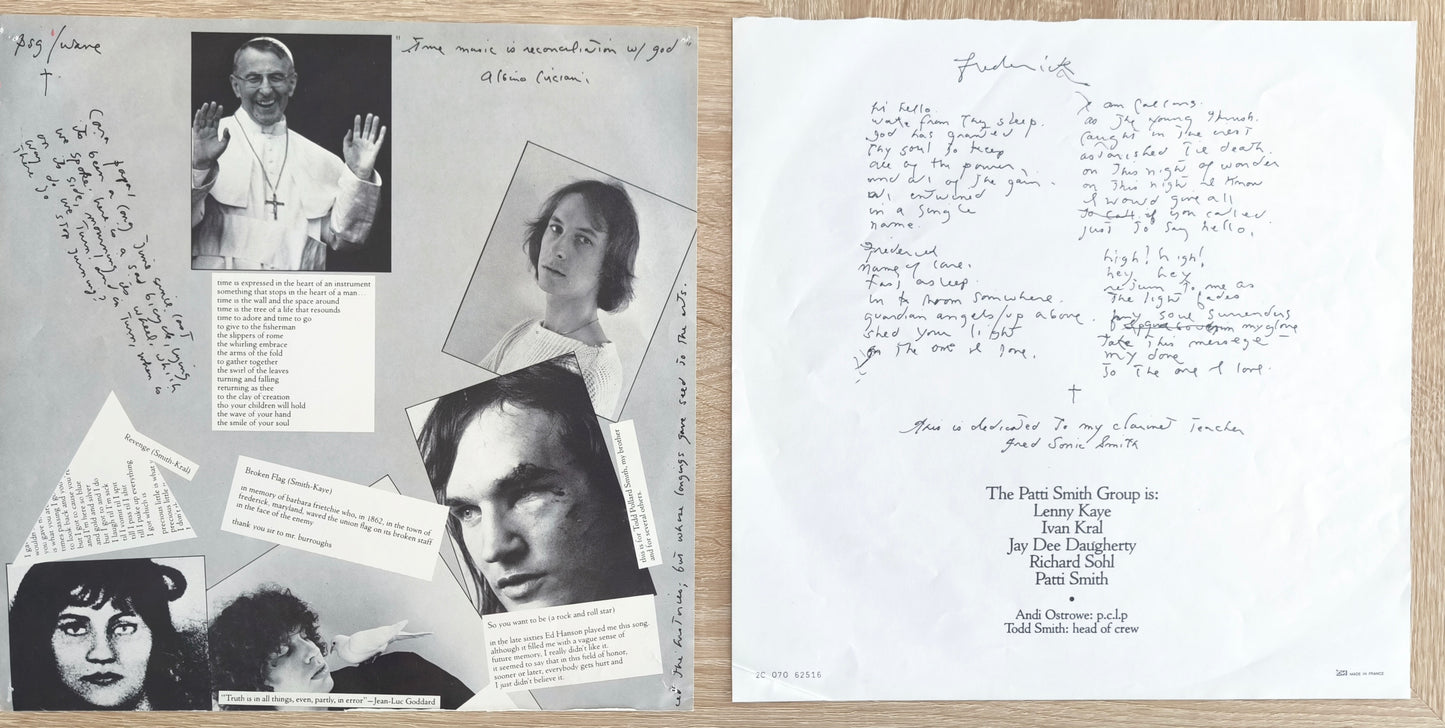 psg/wave
"True music is reconciliation w/ god"
albino luciani
time is expressed in the heart of an instrument
something that stops in the heart of a man...
time is the wall and the space around
time is the tree of a life that resounds
time to adore and time to go
to give to the fisherman
the slippers of rome
the whirling embrace
the arms of the fold
to gather together
the swirl of the leaves
turning and falling
returning as thee
to the clay of creation
tho your children will hold
the wave of your hand
the smile of your soul
Revenge (Smith-Kral)
you gave
is what you are
times passing I
to look back and you
but I got to cause you
and I'm here so blue
and gold and silver
but I got to and I do
I laugh til I'm sick
til I vomit til I spit
til I piss til I shit
til I puke up everything
I got which is
precious little is what y
precious little
I don't
Broken Flag (Smith-Kaye)
in memory of barbara frietchie who, in 1862, in the town of
frederick, maryland, waved the union flag on its broken staff
in the face of the enemy
thank you sir to mr. burroughs
this is for Todd Pollard Smith, my brother
and for several others.
So you want to be (a rock and roll star)
in the late sixties Ed Hanson played me this song.
although it filled me with a vague sense of
future memory, I really didn't like it.
it seemed to say that in this field of honor,
sooner or later, everybody gets hurt and
I just didn't believe it.
"Truth is in all things, even, partly, in error"—Jean-Luc Goddard
but whose longings gave seed to the arts.
frederick
hi hello.
wake from thy sleep.
god has granted
thy soul to keep
all of the power
and all of the gain.
all entwined
in a single
name.
frederick
name of care.
fast asleep.
in a room somewhere.
guardian angels/up above.
shed your light
on the one I love.
I am falling.
as the young thrush.
caught in the nest
astonished til death.
on this night of wonder
on this night I know
I would give all
to call if you called
just to say hello.
high! high!
hey hey
return to me as
the light fades
my soul surrenders
my glove
take this message
my dove
to the one I love.
this is dedicated to my clarinet teacher
fred sonic smith
The Patti Smith Group is:
Lenny Kaye
Ivan Kral
Jay Dee Daugherty
Richard Sohl
Patti Smith
•
Andi Ostrowe: p.c.l.p
Todd Smith: head of crew
2C 070 62516
MADE IN FRANCE